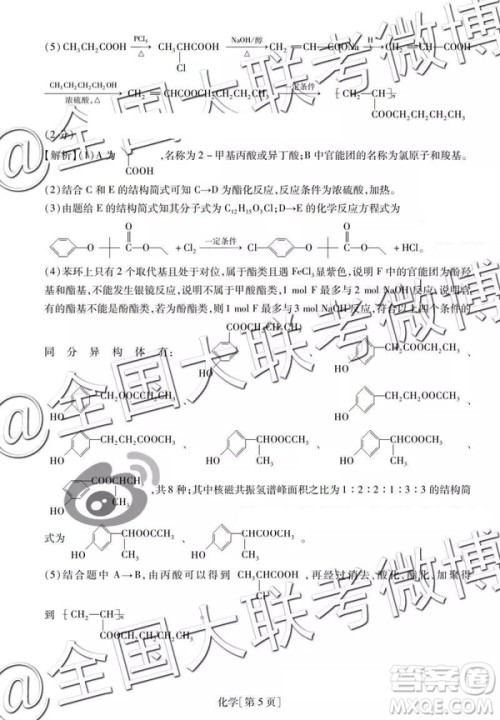 (5) CH₃CH₂COOH PCl₃ △ CH₃CHCOOH NaOH/醇 △ CH₂ H CH₂ COOH
Cl
CH₃CH₂CH₂CH₂OH 浓硫酸,△ CH₂ COOCH₂CH₂CH₂CH₃ 一定条件 [CH₂—CH]ₙ
COOCH₂CH₂CH₂CH₃
(2分)
【解析】(1)A为 COOH ,名称为2-甲基丙酸或异丁酸;B中官能团的名称为氯原子和羧基。
(2)结合C和E的结构简式可知C→D为酯化反应,反应条件为浓硫酸,加热。
(3)由题给E的结构简式可知其分子式为C₁₂H₁₅O₃Cl;D→E的化学反应方程式为
O O + Cl₂ 一定条件 Cl O O + HCl。
(4)苯环上只有2个取代基且处于对位,属于酯类且遇FeCl₃显紫色,说明F中的官能团为酚羟
基和酯基,不能发生银镜反应,说明不属于甲酸酯类,1 mol F最多与2 mol NaOH反应,说明含
有的酯基不能是酚酯类,若为酚酯类,则1 mol F最多与3 mol NaOH反应,符合以上四个条件的
同分异构体有:
HO CH₂COOCH₂CH₃ 、
HO HO CH₂CH₂OOCCH₃
HO CH₂CH₂COOCH₃ 、 HO CHOOCCH₃ CH₃ 、 HO CHCOOCH₃ CH₃ 、
HO CH₃ ,共8种;其中核磁共振氢谱峰面积之比为1∶2∶2∶1∶3∶3的结构简
式为 HO CHOOCCH₃ CH₃ 、 HO CHCOOCH₃ CH₃ 。
(5)结合题中A→B,由丙酸可以得到 CH₃CHCOOH Cl ,再经过消去、酸化、酯化、加聚得
到 [CH₂—CH]ₙ
COOCH₂CH₂CH₂CH₃
化学[第5页]
@全国大联考微博
@全国大联考微博
答案圈